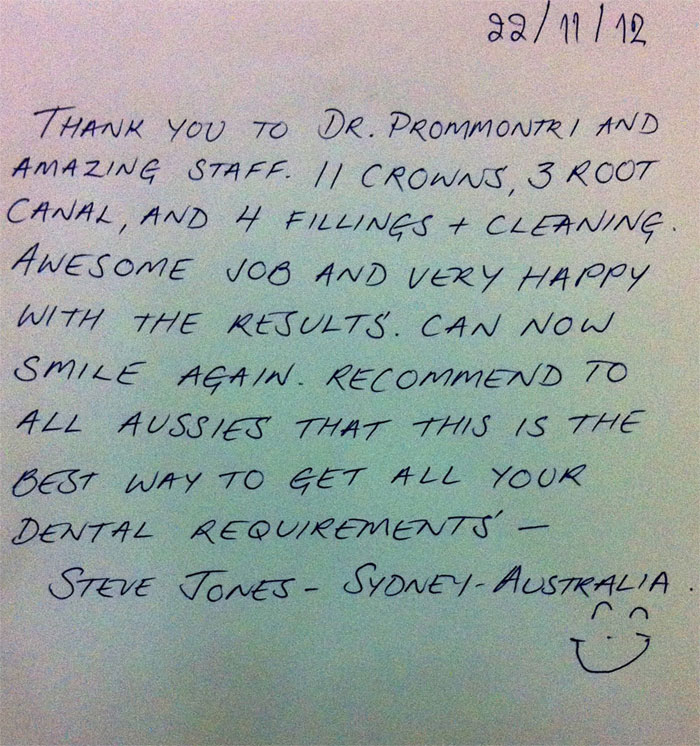 22/11/12
THANK YOU TO DR. PROMMONTRI AND
AMAZING STAFF. 11 CROWNS, 3 ROOT
CANAL, AND 4 FILLINGS + CLEANING.
AWESOME JOB AND VERY HAPPY
WITH THE RESULTS. CAN NOW
SMILE AGAIN. RECOMMEND TO
ALL AUSSIES THAT THIS IS THE
BEST WAY TO GET ALL YOUR
DENTAL REQUIREMENTS –
STEVE JONES - SYDNEY - AUSTRALIA.